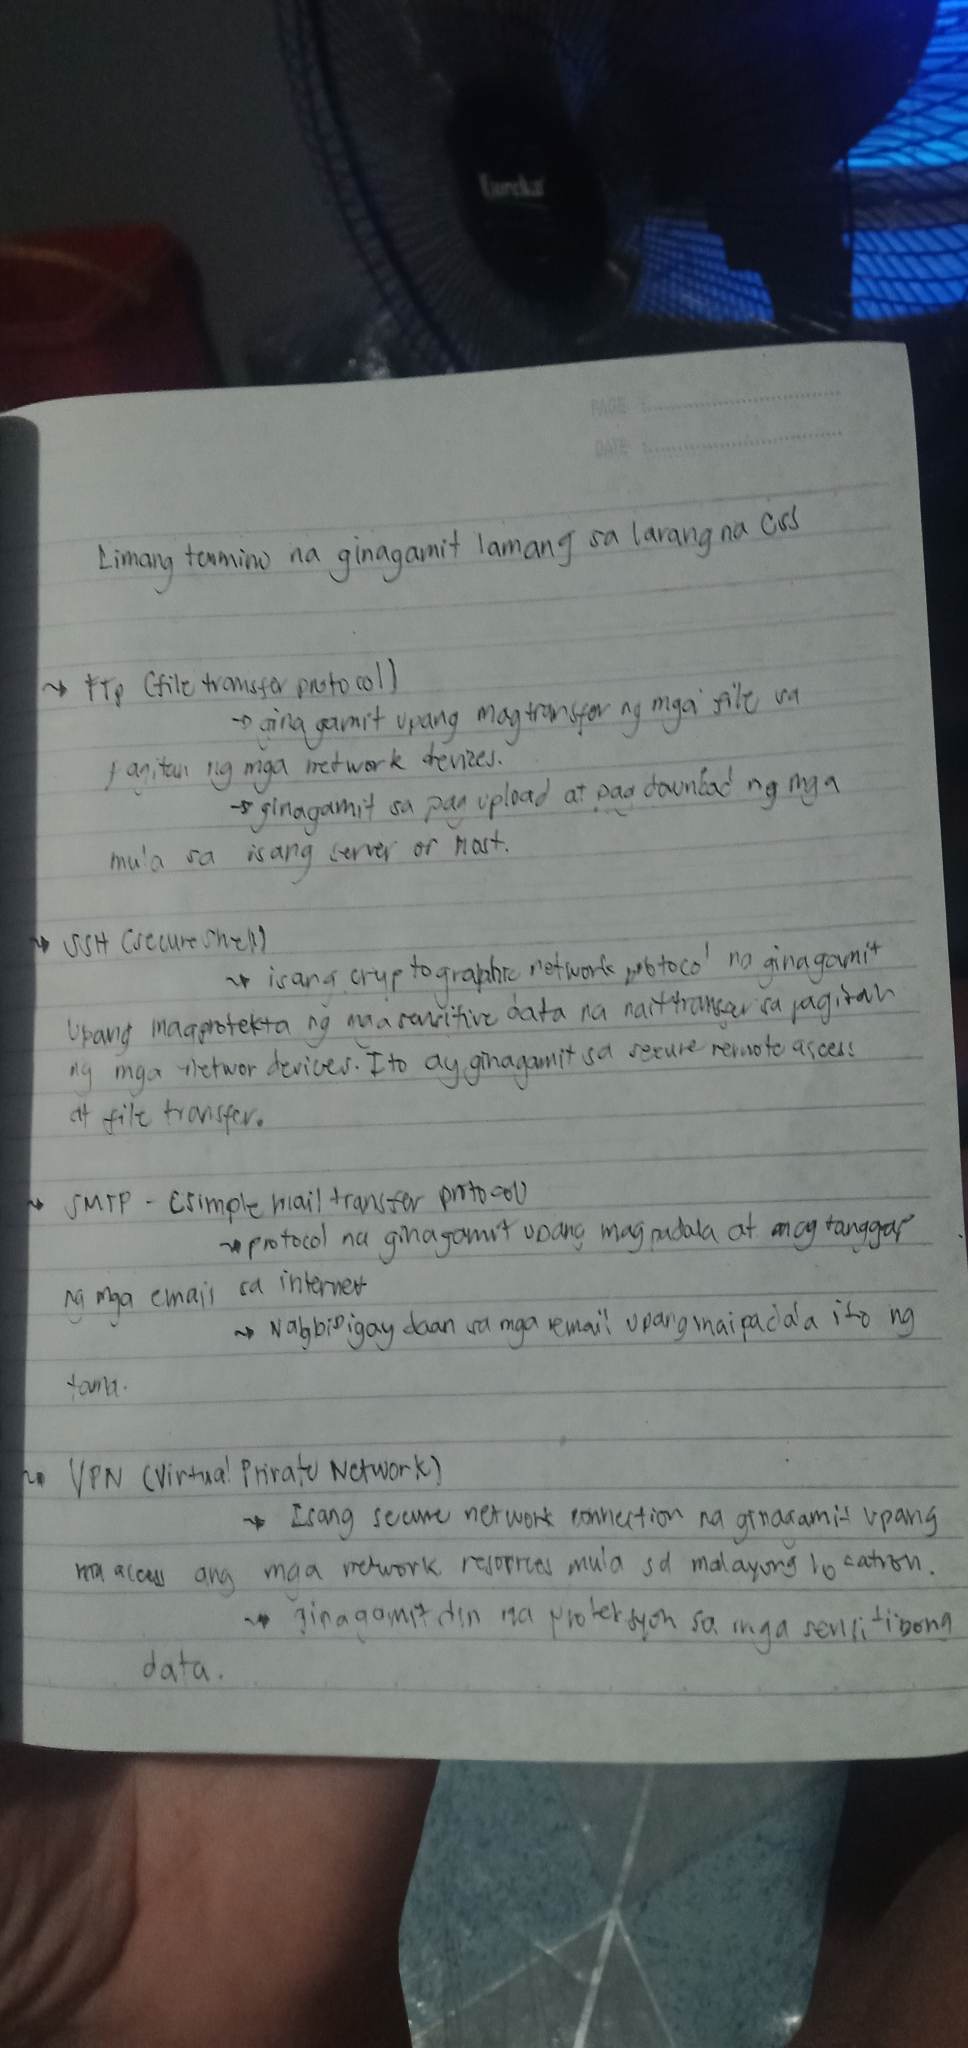 Eureka
PAGE :
DATE :
Limang termino na ginagamit lamang sa larang na CSS
FTP (file transfer protocol)
ginagamit upang magtransfer ng mga file sa
pagitan ng mga network devices.
ginagamit sa pag upload at pag download ng mga
mula sa isang server or host.
SSH (secure shell)
isang cryptographic network protocol na ginagamit
Upang magprotekta ng mga sensitive data na naittransfer sa pagitan
ng mga networ devices. Ito ay ginagamit sa secure remote access
at file transfer.
SMTP - (simple mail transfer protocol)
protocol na ginagamit upang magpadala at mag tanggap
ng mga emails sa internet
Nagbibigay daan sa mga email upang maipadala ito ng
tama.
VPN (Virtual Private Network)
Isang secure network connection na ginagamit upang
ma access ang mga network resources mula sa malayong location.
ginagamit din na proteksyon sa mga sensitibong
data.